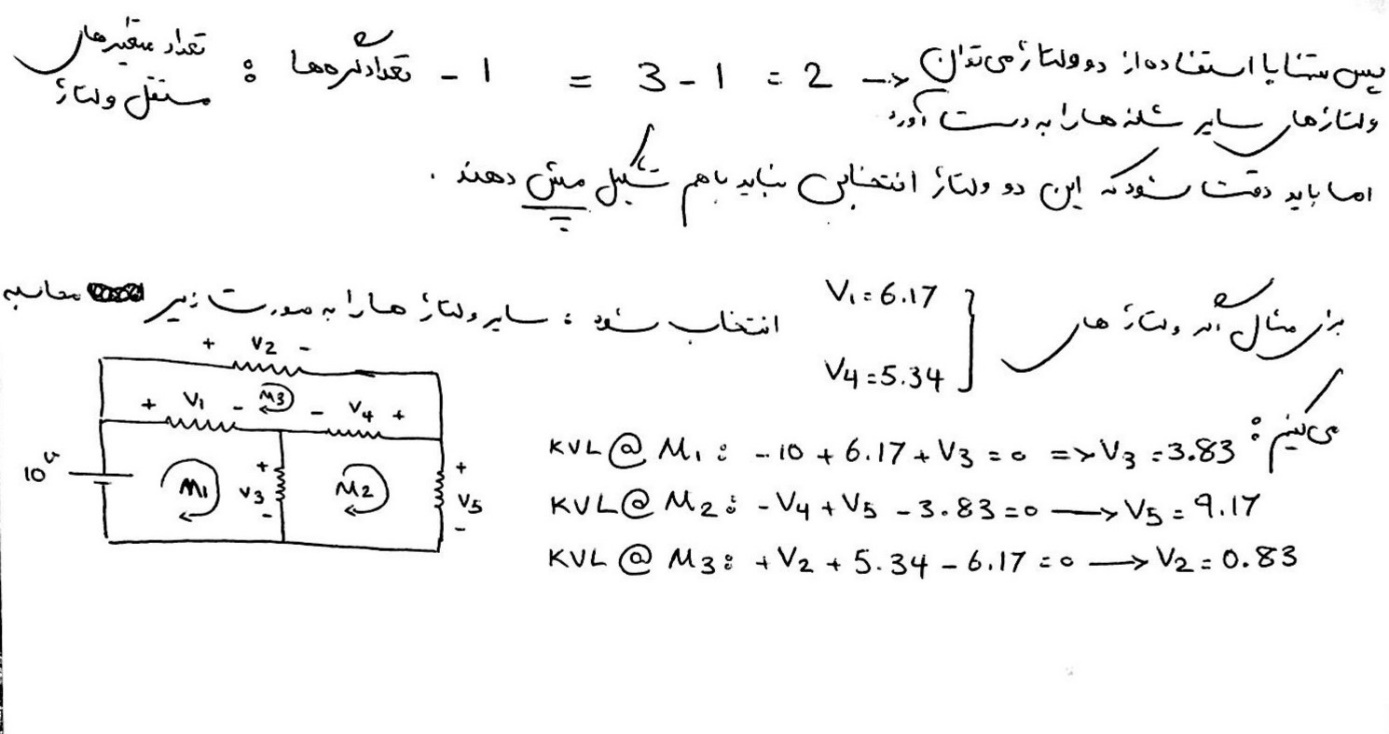 تعداد متغیرهای مستقل ولتاژ : تعداد گره‌ها - 1 = 3 - 1 = 2 → پس تنها با استفاده از دو ولتاژ می‌توان
ولتاژهای سایر شاخه‌ها را به دست آورد
اما باید دقت شود که این دو ولتاژ انتخابی نباید باهم تشکیل مش دهند .
برای مثال اگر ولتاژ های V1 = 6.17 V4 = 5.34 } انتخاب شود ؛ سایر ولتاژ ها را به صورت زیر محاسبه
می‌کنیم :
KVL @ M1 : -10 + 6.17 + V3 = 0 => V3 = 3.83
KVL @ M2 : -V4 + V5 - 3.83 = 0 → V5 = 9.17
KVL @ M3 : +V2 + 5.34 - 6.17 = 0 → V2 = 0.83
+ V2 -
+ V1 - M3 - V4 +
10v M1 + V3 - M2 + V5 -